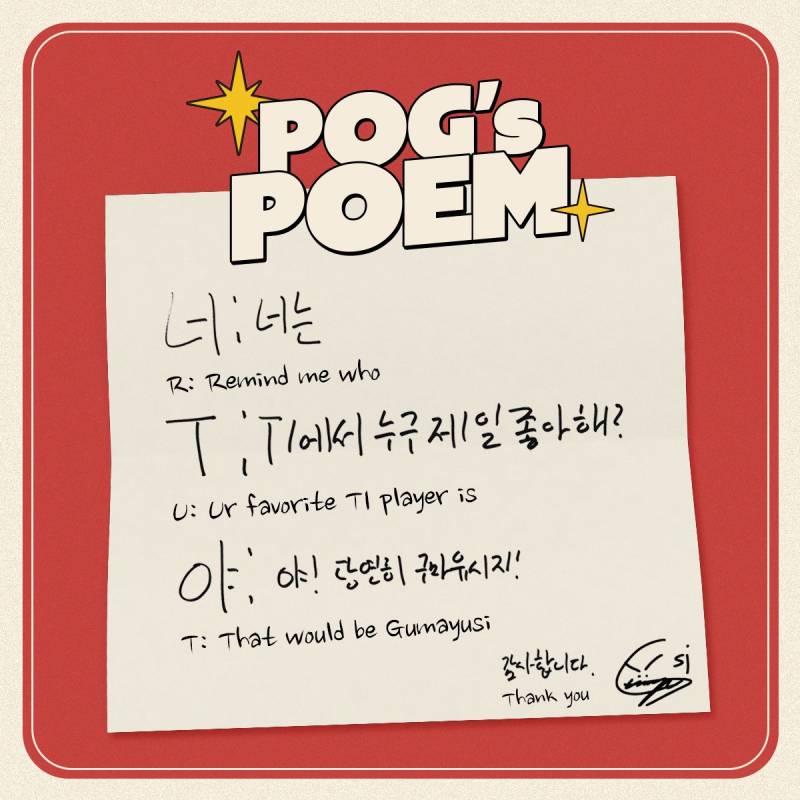 POG's
POEM
너; 너는
R: Remind me who
T; T1에서 누구 제일 좋아해?
U: Ur favorite T1 player is
야; 야! 당연히 구마유시지!
T: That would be Gumayusi
감사합니다.
Thank you
si